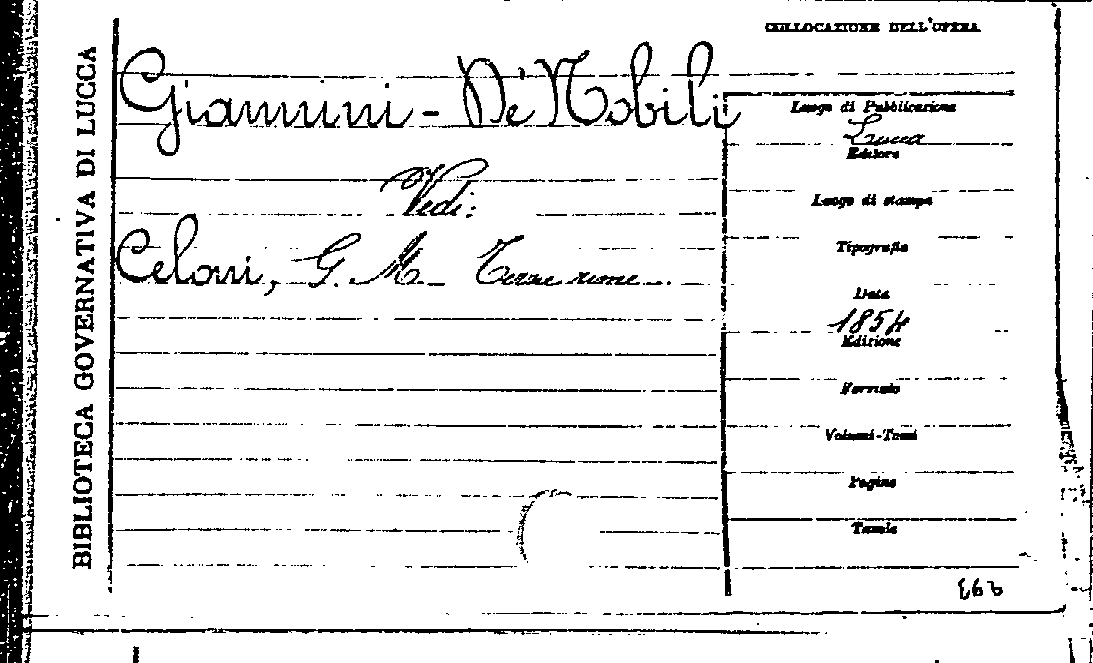 BIBLIOTECA GOVERNATIVA DI LUCCA
COLLOCAZIONE DELL'OPERA
Giannini - De' Nobili
Vedi:
Celoni, G. M. Terze rime.
Luogo di Pubblicazione
Lucca
Editore
Luogo di stampa
Tipografia
Data
1854
Edizione
Formato
Volumi-Tomi
Pagine
Tavole